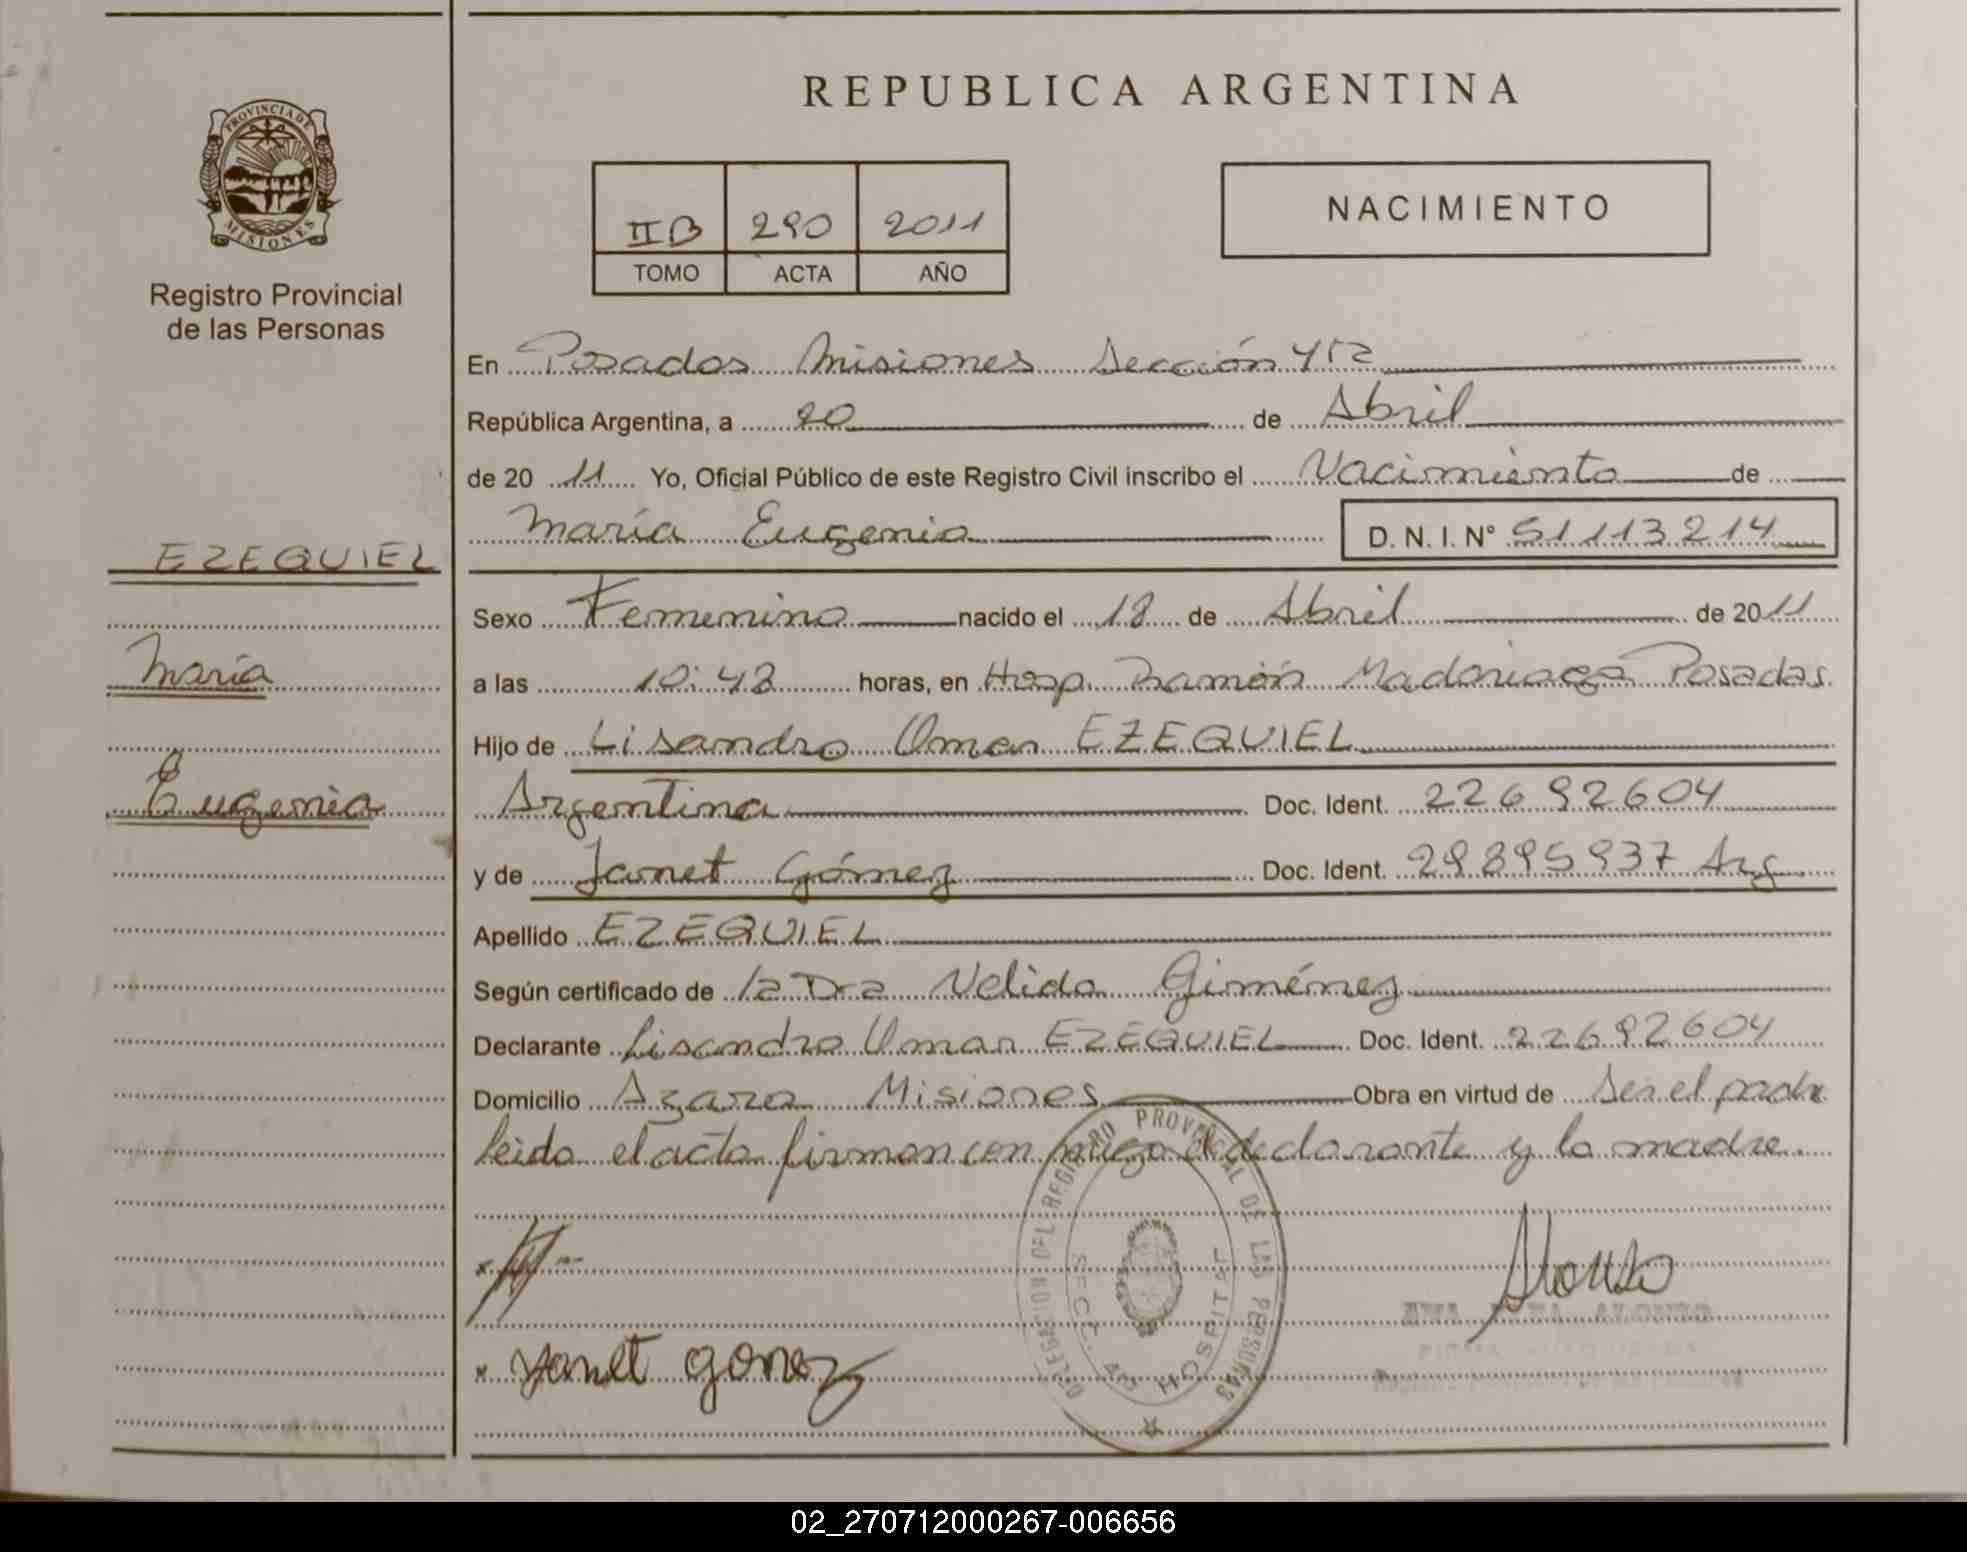 REPUBLICA ARGENTINA
PROVINCIA DE
MISIONES
Registro Provincial
de las Personas
II B 290 2011
TOMO ACTA AÑO
NACIMIENTO
En Posadas Misiones Sección 4ta
República Argentina, a 20 de Abril
de 20 11 Yo, Oficial Público de este Registro Civil inscribo el Nacimiento de
María Eugenia D. N. I. N° 51113214
EZEQUIEL
María
Eugenia
Sexo Femenino nacido el 18 de Abril de 2011
a las 10:48 horas, en Hosp. Ramón Madariaga Posadas
Hijo de Lisandro Omar EZEQUIEL
Argentina Doc. Ident. 22692604
y de Janet Gómez Doc. Ident. 29895937 Arg
Apellido EZEQUIEL
Según certificado de la Dra Nelida Giménez
Declarante Lisandro Omar EZEQUIEL Doc. Ident. 22692604
Domicilio Azara Misiones Obra en virtud de ser el padre
leida el acta firman con migo el declarante y la madre.
DELEGACION DEL REGISTRO PROVINCIAL DE LAS PERSONAS
SECC. HOSPITAL
Yanet gomez
02_270712000267-006656